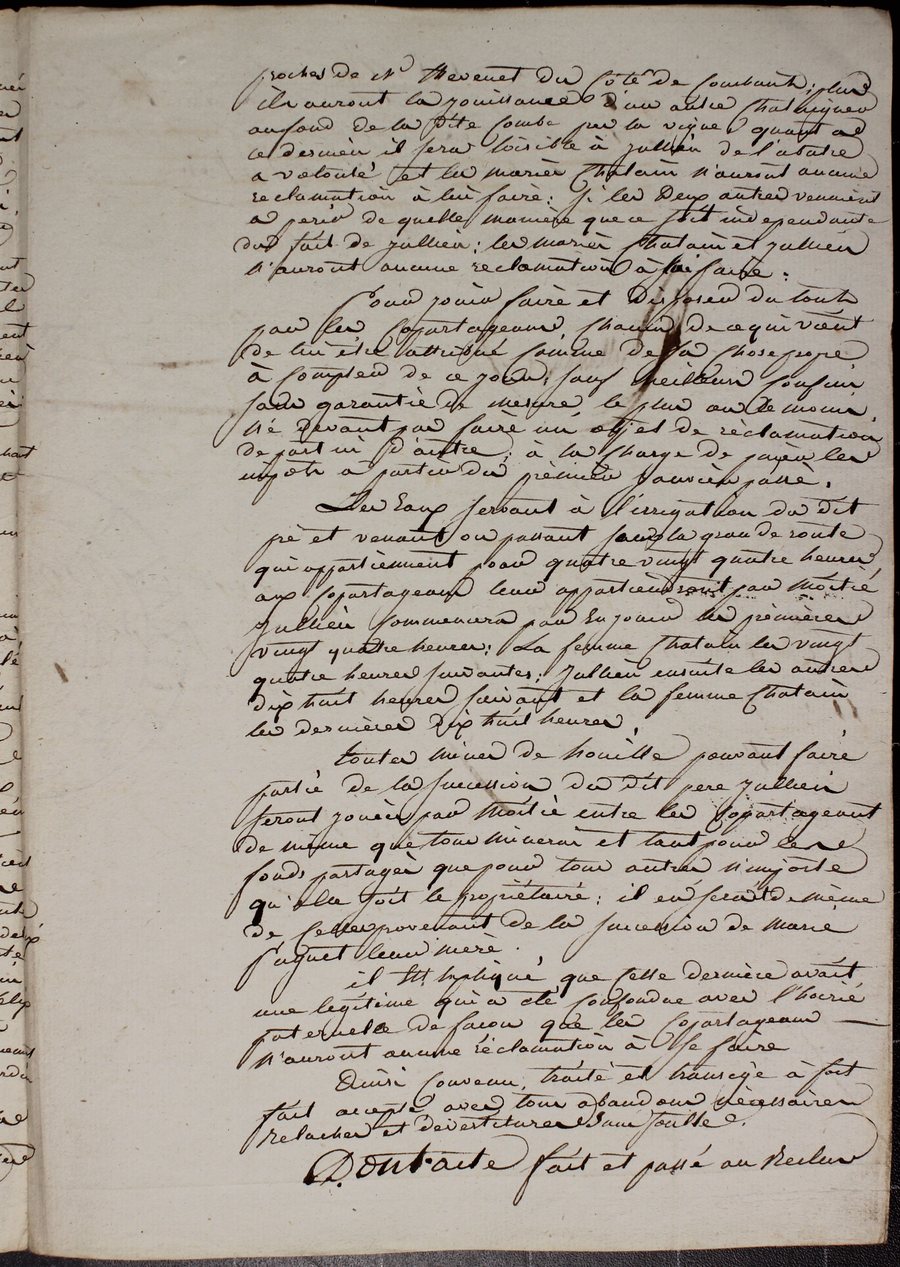 proches de Mr Thevenet du Coté de Combanti; plus
ils auront la jouissance d'un autre Chataigner
au fond de la dite Combe par la vigne quant a
ce dernier il sera loisible à Jullien de l'abatre
a volonté et les mariés Chatain n'auront aucune
reclamation à lui faire; si les deux autres venaient
a perir de quelle manière que ce soit independante
du fait de Jullien; les mariés Chatain et Jullien
n'auront aucune reclamation à se faire.
Pour jouir faire et disposer du tout
par les Copartageans, chacun de ce qui vient
de lui être attribué comme de sa chose propre
à Compter de ce jour, sauf meilleurs Confins
sans garantie de mesure le plus ou le moins
ne devant pas faire un objet de réclamation
de part ni d'autre; à la charge de païer les
impots a partir du prémier Janvier passé.
Les Eaux servant à l'irrigation du dit
pré et venant ou passant sous la grande route
qui appartiennent pour quatre vingt quatre heures
aux copartageans leur appartiendront par moitié
Jullien Commencera par En jouir les prémières
vingt quatre heures; La femme Chatain les vingt
quatre heures suivantes; Jullien ensuite les autres
dix huit heures suivant et la femme Chatain
les dernières dix huit heures.
toutes mines de houille pouvant faire
partie de la succession du dit pere Jullien
seront jouies par moitié entre les Copartageant
de même que tous minerais et tant pour les
fonds partagés que pour tous autres n'importe
qu'elle soit le propriétaire; il en serait de même
de celles provenant de la succession de marie
paquet leur mere.
il est Expliqué que cette dernière avait
une légitime qui a été confondue avec l'hoirie
paternelle de facon que les Copartageans
n'auront aucune réclamation à se faire
Ainsi Convenu, traité et transigé à fait
fait accepté avec tous abandons nécessaires
relachés et devestitures dans foulle.
Dont acte fait et passé au Reclus